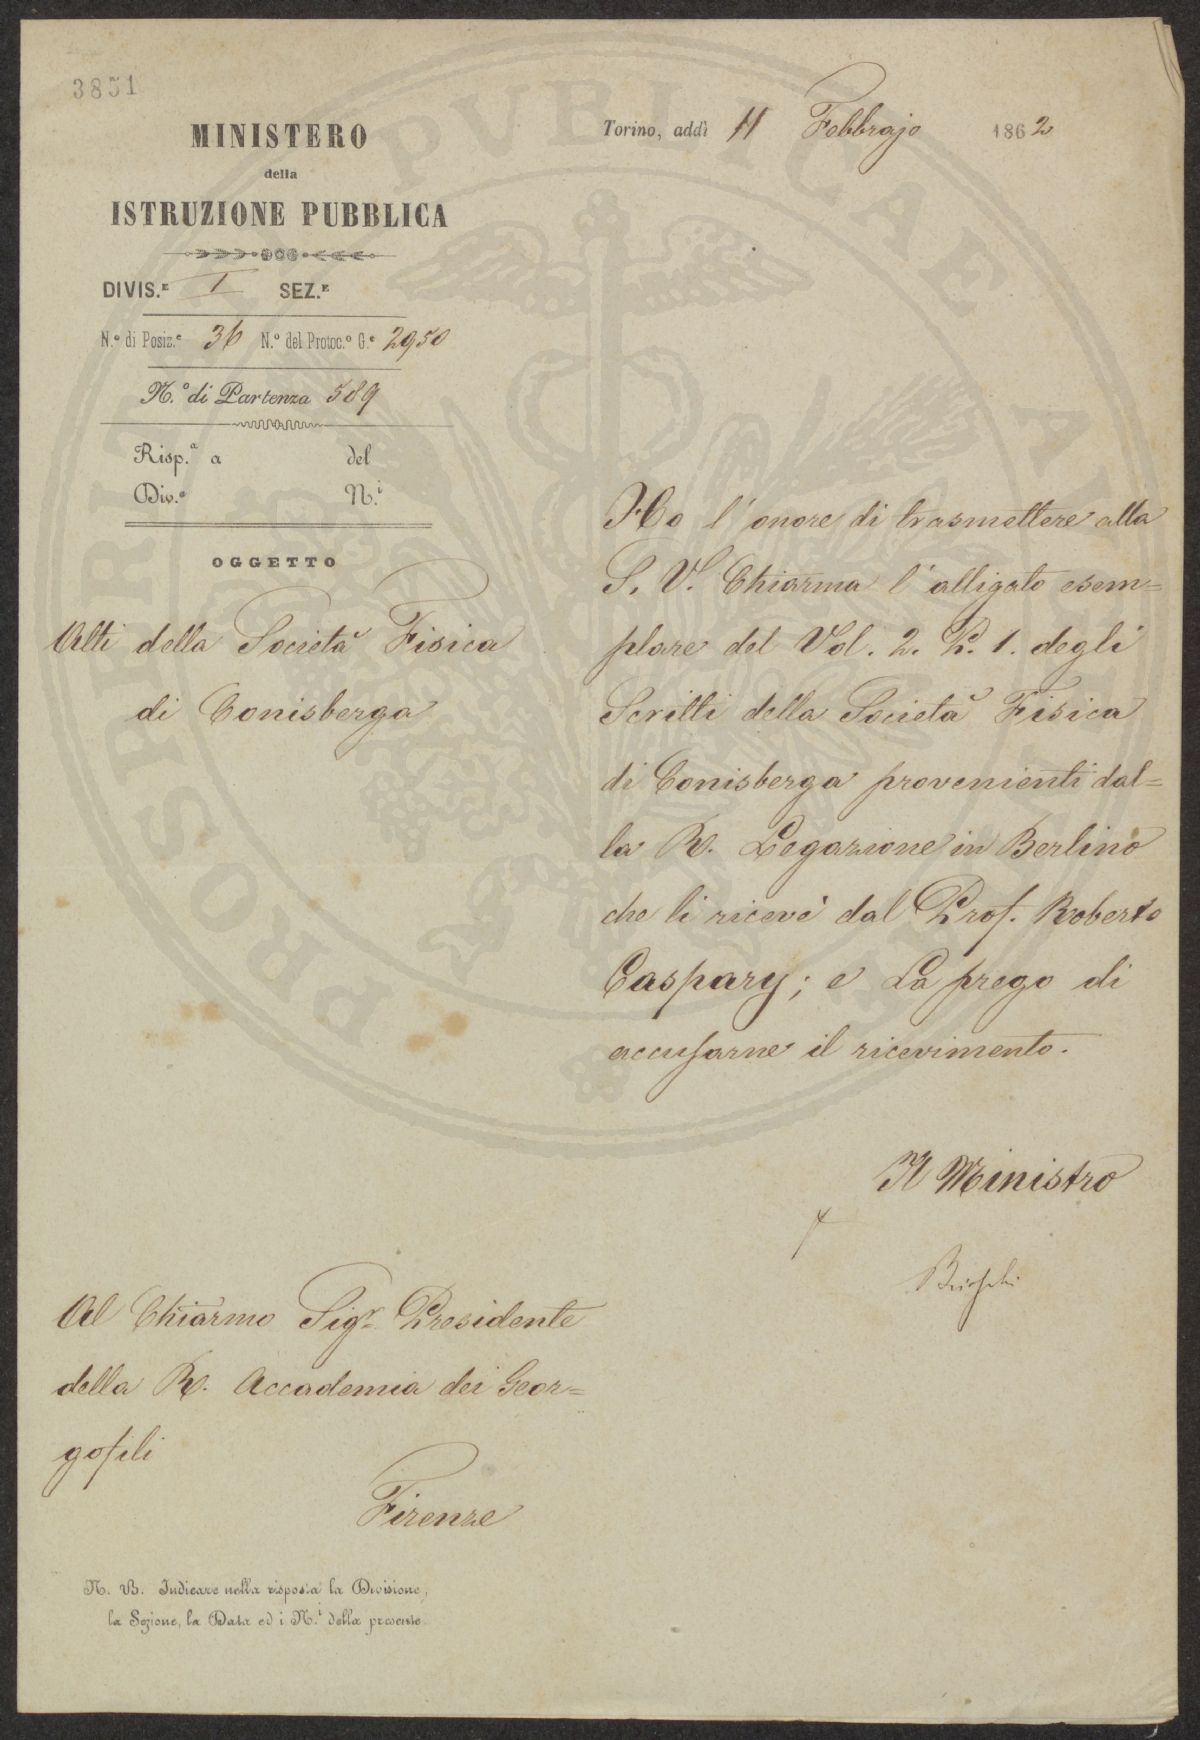 3851
MINISTERO
della
ISTRUZIONE PUBBLICA
DIVIS.E I SEZ.E
N.o di Posiz.e 36 N.o del Protoc.o G.e 2950
N.o di Partenza 589
Risp.a a del
Div.e N.i
OGGETTO
Atti della Società Fisica
di Conisberga
Torino, addì 11 Febbrajo 1862
Ho l'onore di trasmettere alla
S. V. Chiarma l'alligato esem=
plare del Vol. 2. P. 1. degli
Scritti della Società Fisica
di Conisberga provenienti dal=
la R. Legazione in Berlino
che li ricevè dal Prof. Roberto
Caspary; e La prego di
accusarne il ricevimento.
Il Ministro
Brioschi
Al Chiarmo Sigr Presidente
della R. Accademia dei Geor=
gofili
Firenze
N. B. Indicare nella risposta la Divisione,
la Sezione, la Data ed i N.i della presente.